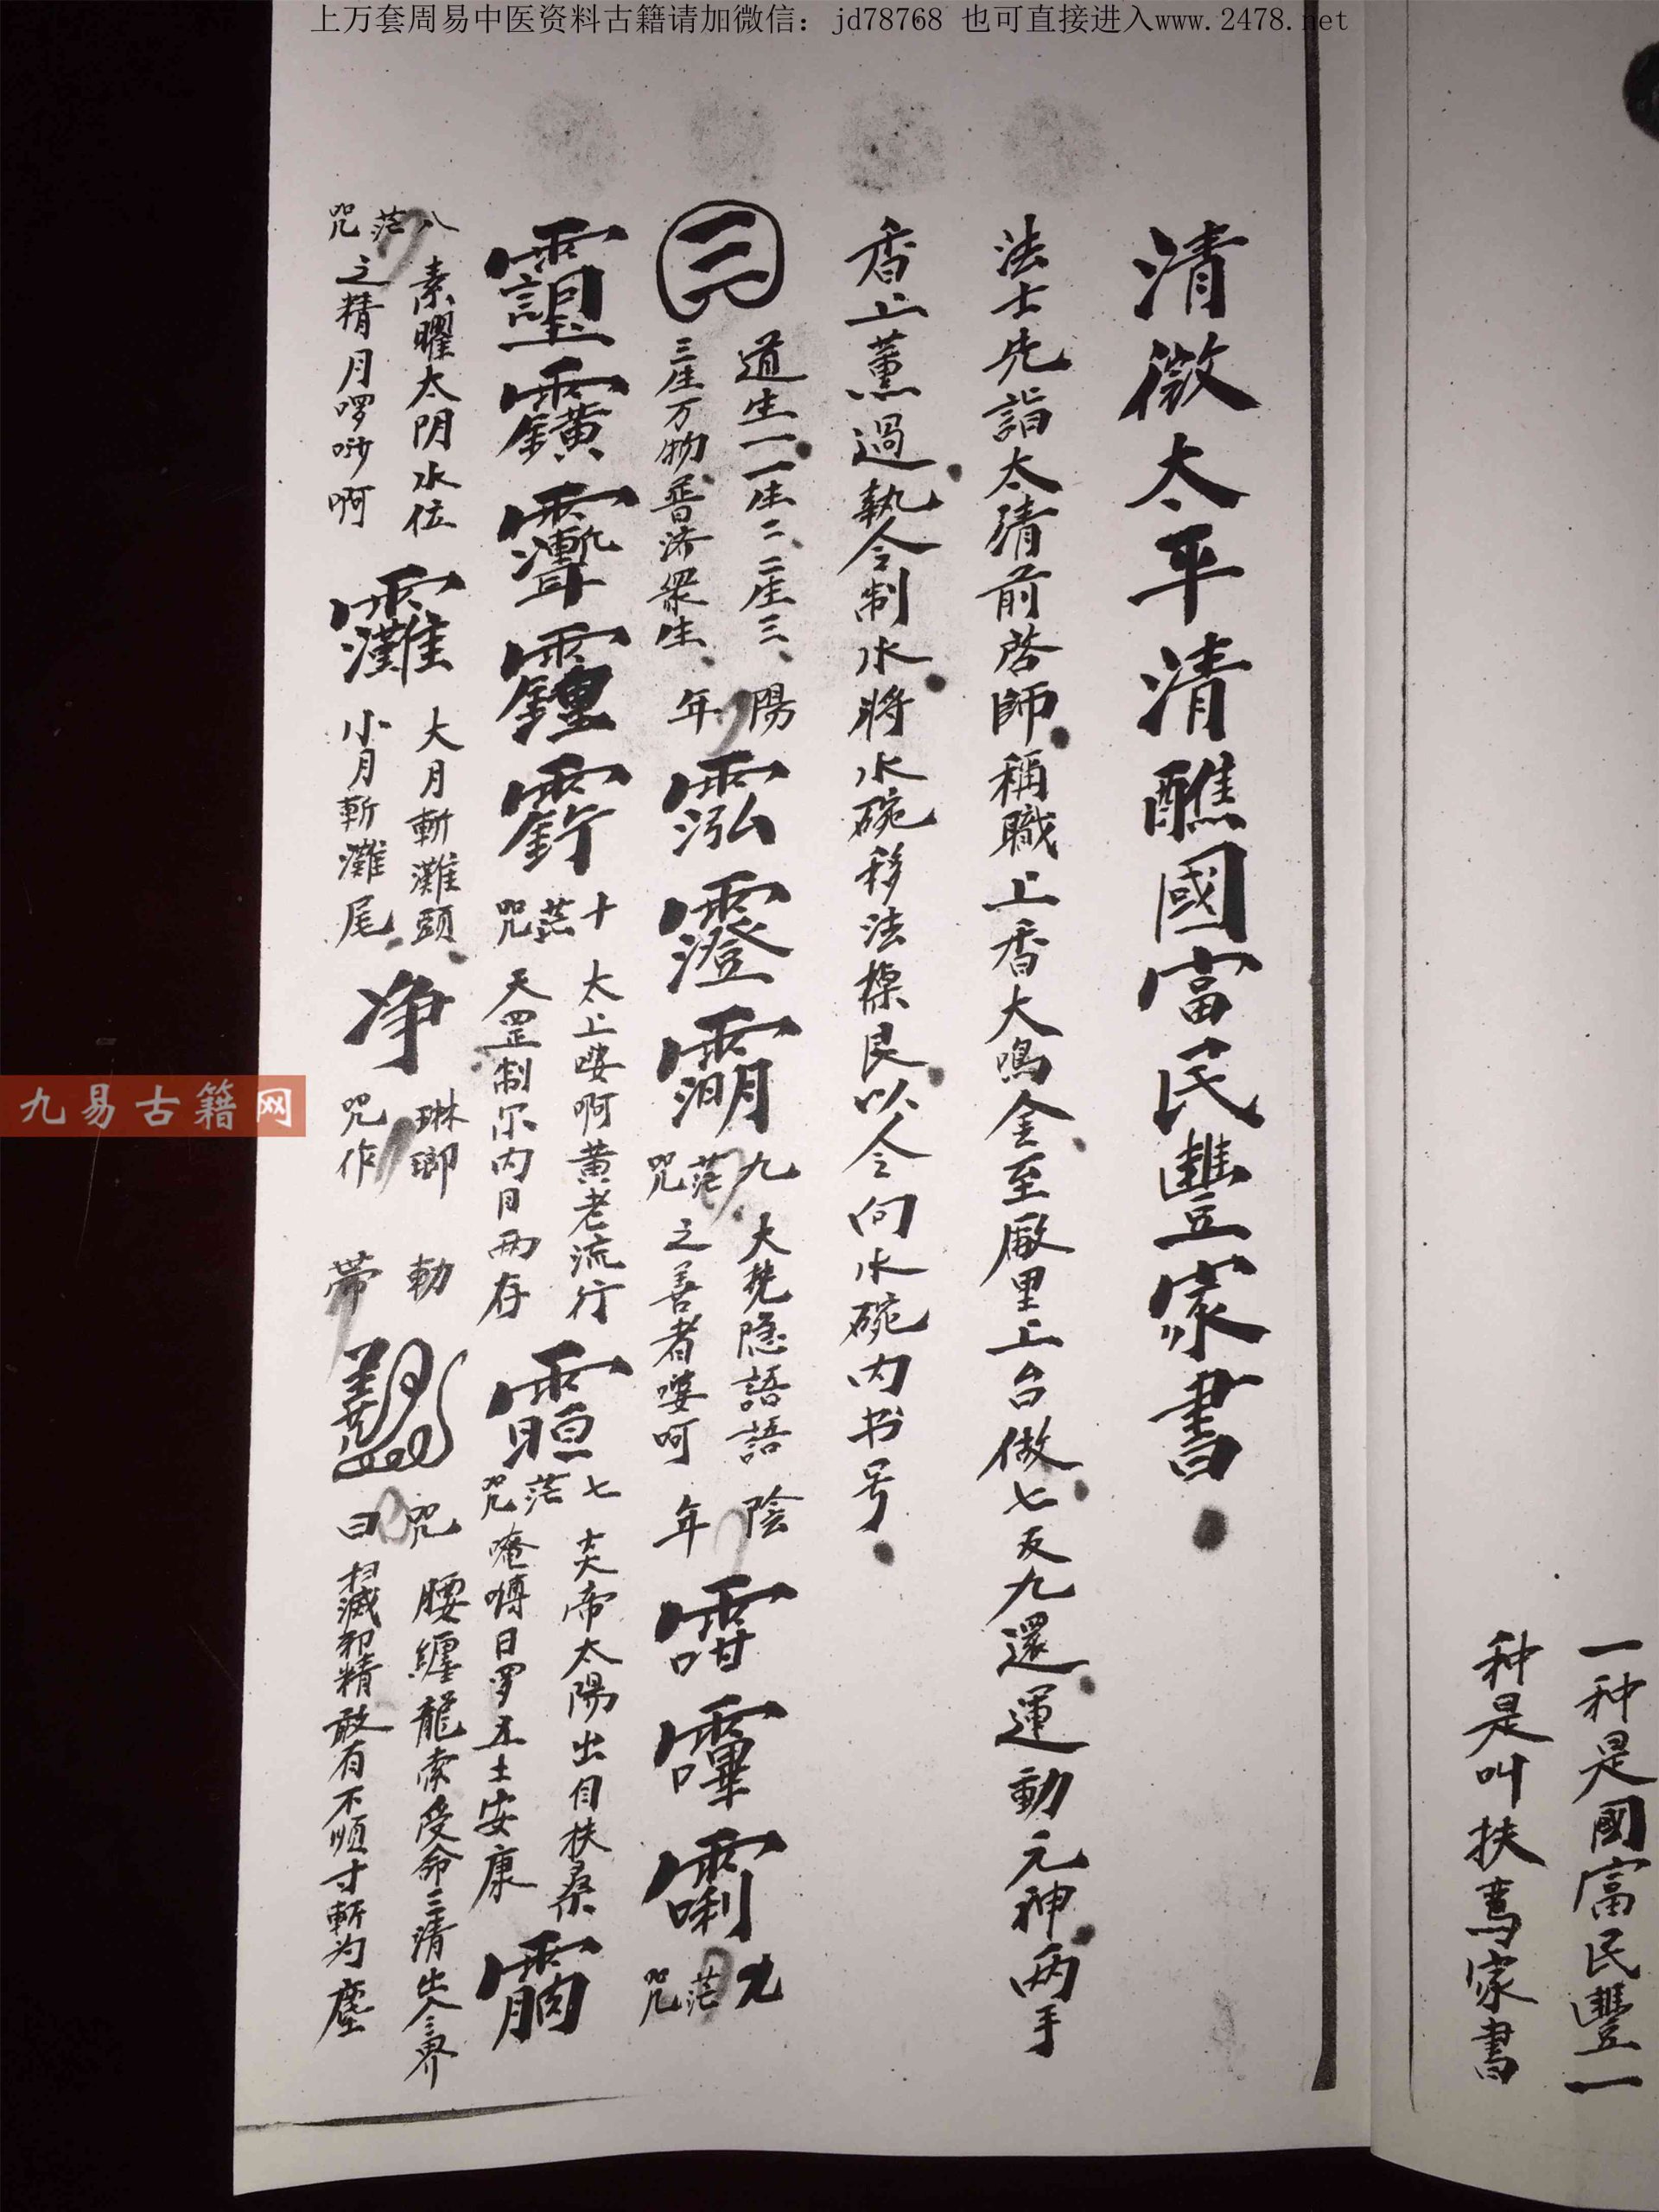 上万套周易中医资料古籍请加微信：jd78768 也可直接进入www.2478.net
一种是國富民豐一
种是叫扶鸾家書
清微太平清醮國富民豐家書
法士先詣太清前啓師稱職上香大鳴金至厰里上台做七反九還運動元神两手
香上薰過執令制水將水碗移法橾艮以令向水碗内书号
三 道生一一生二二生三
三生万物普济衆生
陽年 泓 澄
九茫咒 大梵隐語語
之善者婆呵
陰年
九茫咒
十茫咒 太上婆啊黄老流行
天罡制尔内月两存
七茫咒 炎帝太陽出自扶桑
唵嚩日罗五土安康
八茫咒 素曜太阴水位
之精月啰唦啊
灘 大月斬灘頭
小月斬灘尾
净 琳瑯咒作
勅帶
咒曰 腰纏龍索受命三清出入三界
扫滅邪精敢有不順寸斬为塵
九易古籍网